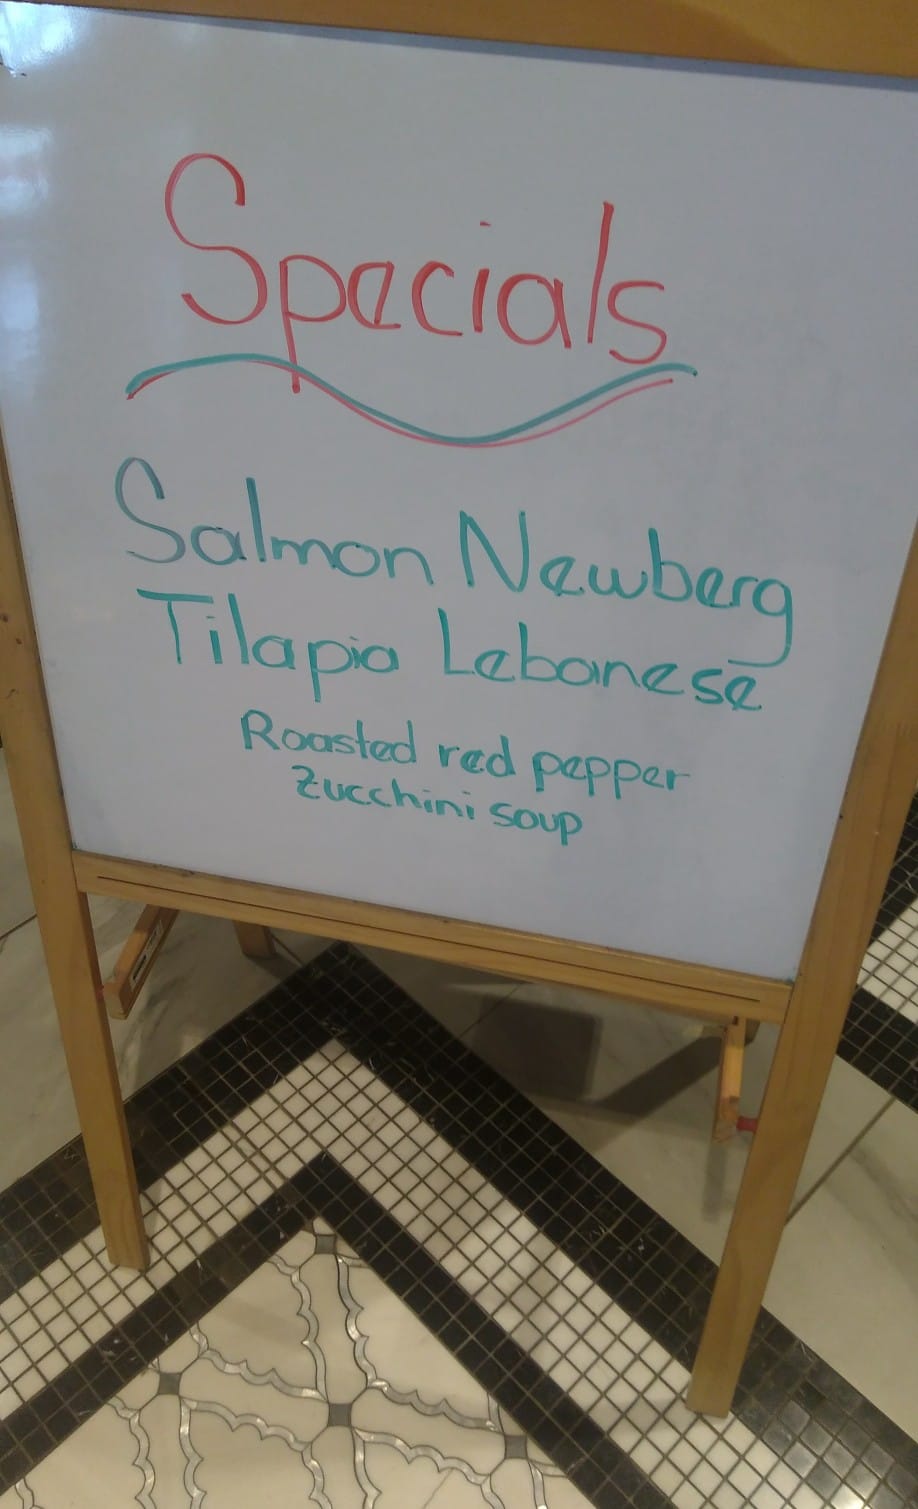 Specials
Salmon Newberg
Tilapia Lebanese
Roasted red pepper
zucchini soup